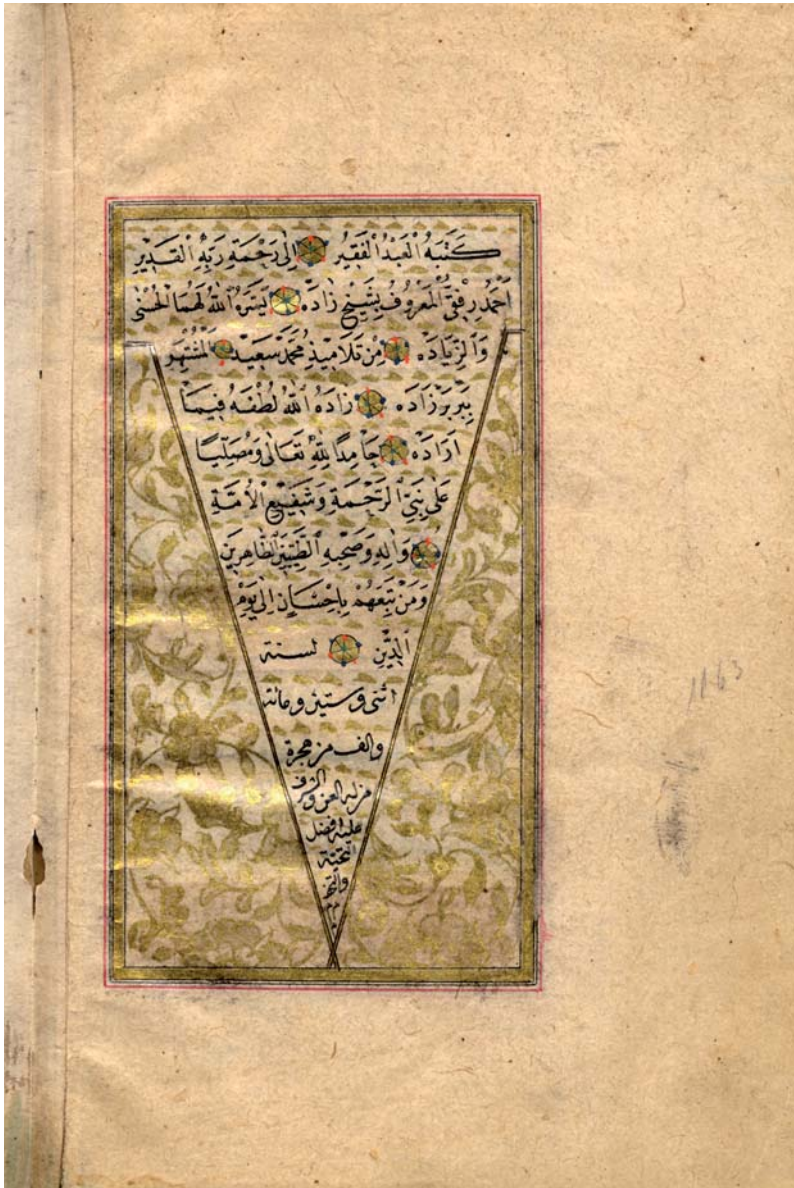 كَتَبَهُ الْعَبْدُ الْفَقِيرُ إِلَى رَحْمَةِ رَبِّهِ الْقَدِيرِ
اَحْمَدُ رِفْقِي الْمَعْرُوفُ بِشَيْخ زَادَه يَسَّرَهُ اللهُ لَهُمَا الْحُسْنٰى
وَالزِّيَادَه مِنْ تَلَامِيذِ مُحَمَّد سَعِيد الْمُشْتَهِرِ
بِبَرْبَرْ زَادَه زَادَهُ اللهُ لُطْفَهُ فِيمَا
اَرَادَه حَامِدًا لِلّٰهِ تَعَالٰى وَمُصَلِّيًا
عَلٰى نَبِيِّ الرَّحْمَةِ وَشَفِيعِ الْاُمَّةِ
وَاٰلِهِ وَصَحْبِهِ الطَّيِّبِينَ الطَّاهِرِينَ
وَمَنْ تَبِعَهُمْ بِاِحْسَانٍ اِلٰى يَوْمِ
الدِّينِ لسنة
اثنى وستين ومائة
والف من هجرة
من له العز والشرف
عليه افضل
التحية
م م م
1163